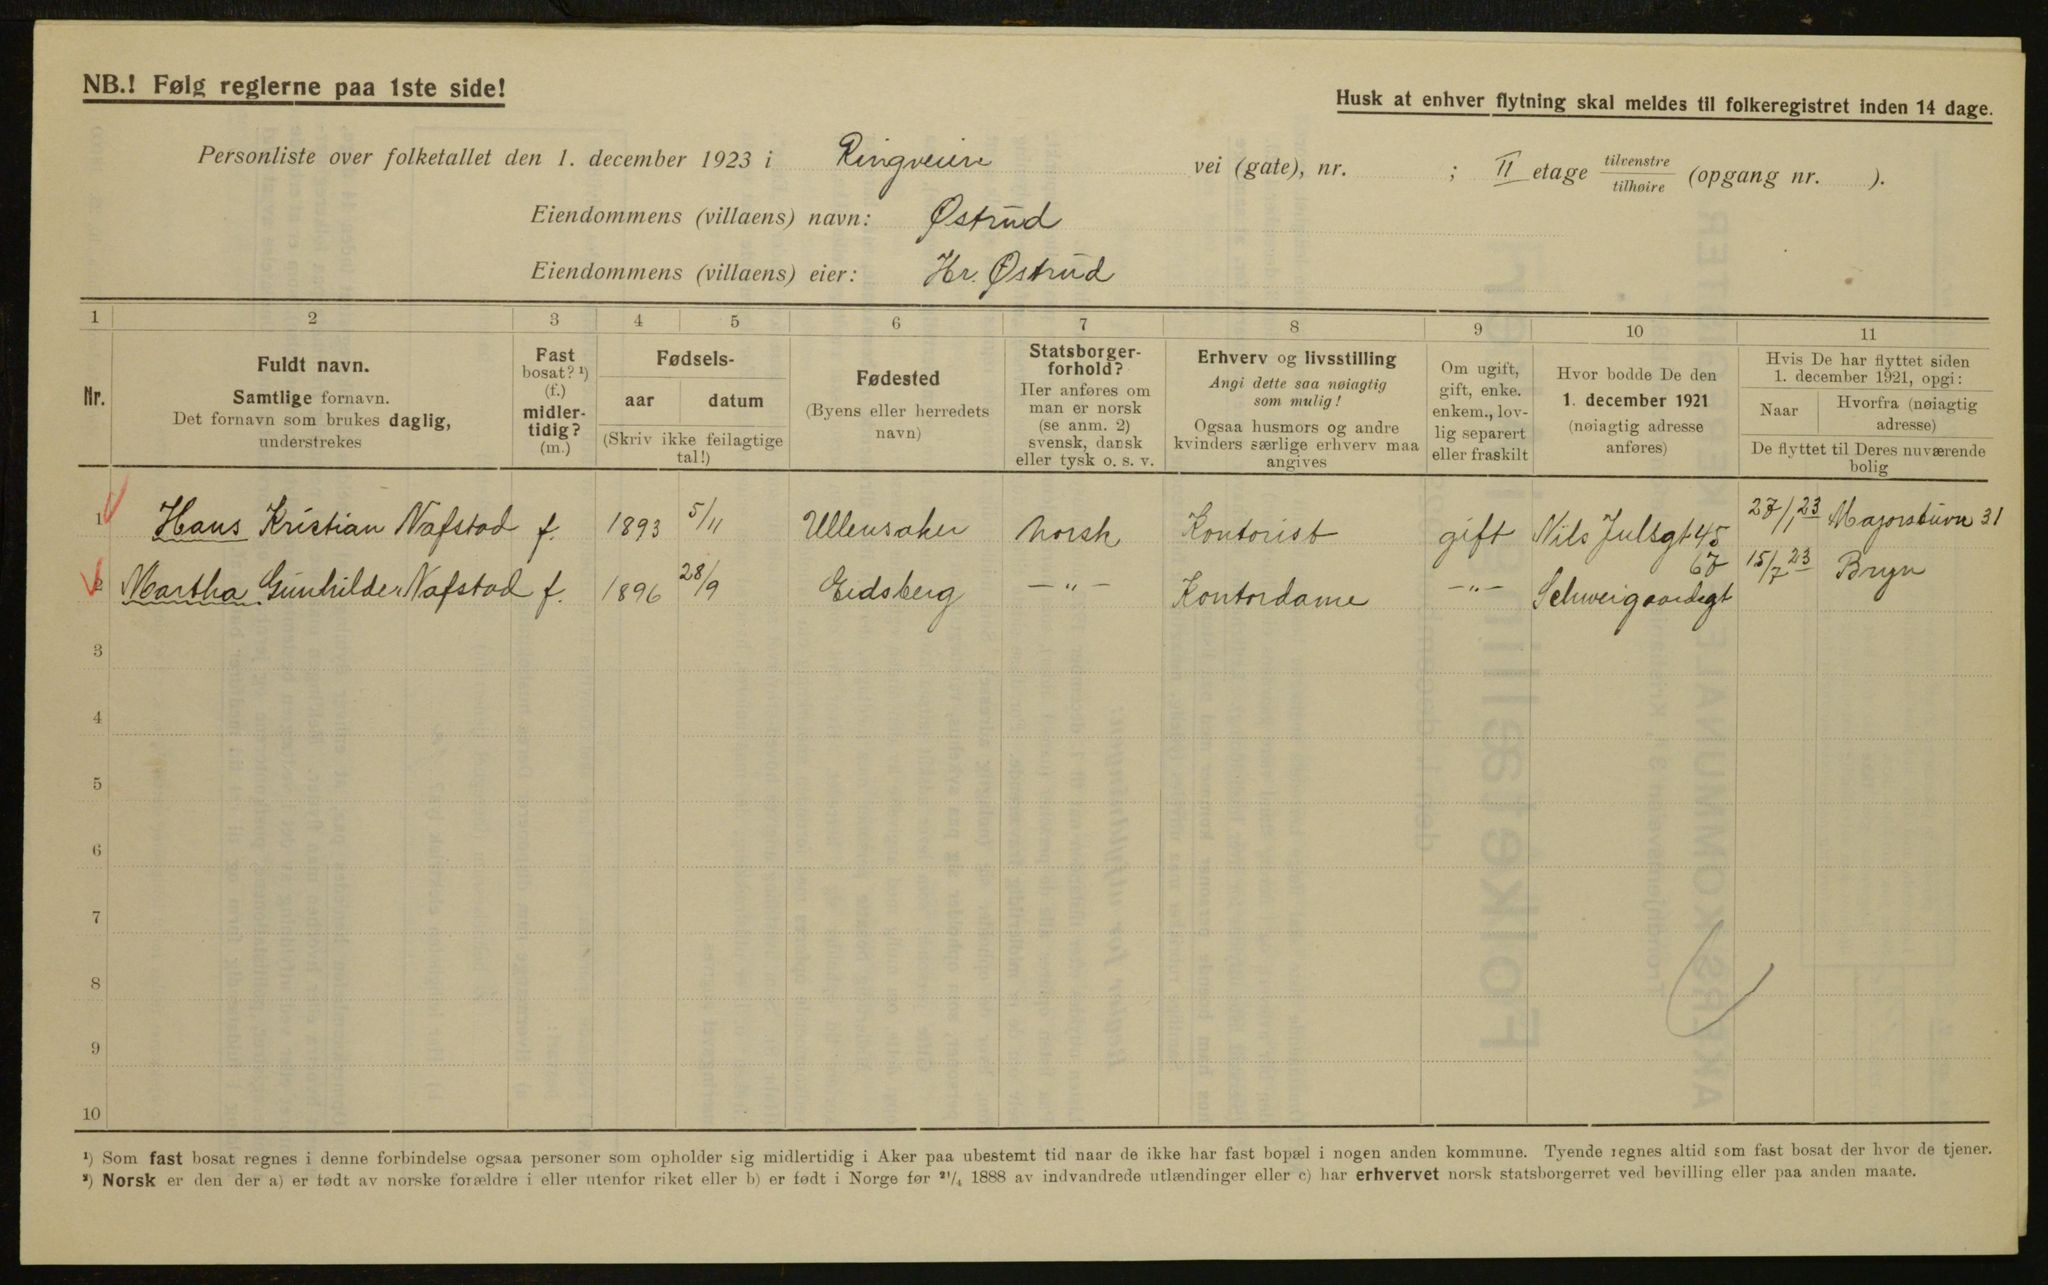 NB.! Følg reglerne paa 1ste side!
Husk at enhver flytning skal meldes til folkeregistret inden 14 dage.
Personliste over folketallet den 1. december 1923 i Ringveien vei (gate), nr. ; II etage tilvenstre/tilhøire (opgang nr. ).
Eiendommens (villaens) navn: Østrud
Eiendommens (villaens) eier: Hr. Østrud
1 2 3 4 5 6 7 8 9 10 11
Nr.
Fuldt navn.
Samtlige fornavn.
Det fornavn som brukes daglig,
understrekes
Fast
bosat? ¹)
(f.)
midler-
tidig?
(m.)
Fødsels-
aar datum
(Skriv ikke feilagtige
tal!)
Fødested
(Byens eller herredets
navn)
Statsborger-
forhold?
Her anføres om
man er norsk
(se anm. 2)
svensk, dansk
eller tysk o. s. v.
Erhverv og livsstilling
Angi dette saa nøiagtig
som mulig!
Ogsaa husmors og andre
kvinders særlige erhverv maa
angives
Om ugift,
gift, enke.
enkem., lov-
lig separert
eller fraskilt
Hvor bodde De den
1. december 1921
(nøiagtig adresse
anføres)
Hvis De har flyttet siden
1. december 1921, opgi:
Naar
Hvorfra (nøiagtig
adresse)
De flyttet til Deres nuværende
bolig
1 Hans Kristian Nafstad f. 1893 5/11 Ullensaker Norsk Kontorist gift Nils Julsgt 45 27/1 23 Majorstuvn 31
2 Martha Gunhilde Nafstad f. 1896 28/9 Eidsberg —"— Kontordame —"— Schweigaardsgt 67 15/7 23 Bryn
3
4
5
6
7
8
9
10
¹) Som fast bosat regnes i denne forbindelse ogsaa personer som opholder sig midlertidig i Aker paa ubestemt tid naar de ikke har fast bopæl i nogen anden kommune. Tyende regnes altid som fast bosat der hvor de tjener.
²) Norsk er den der a) er født av norske forældre i eller utenfor riket eller b) er født i Norge før ²¹/₄ 1888 av indvandrede utlændinger eller c) har erhvervet norsk statsborgerret ved bevilling eller paa anden maate.